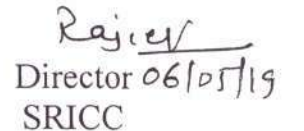 Rajeev
Director 06/05/19
SRICC